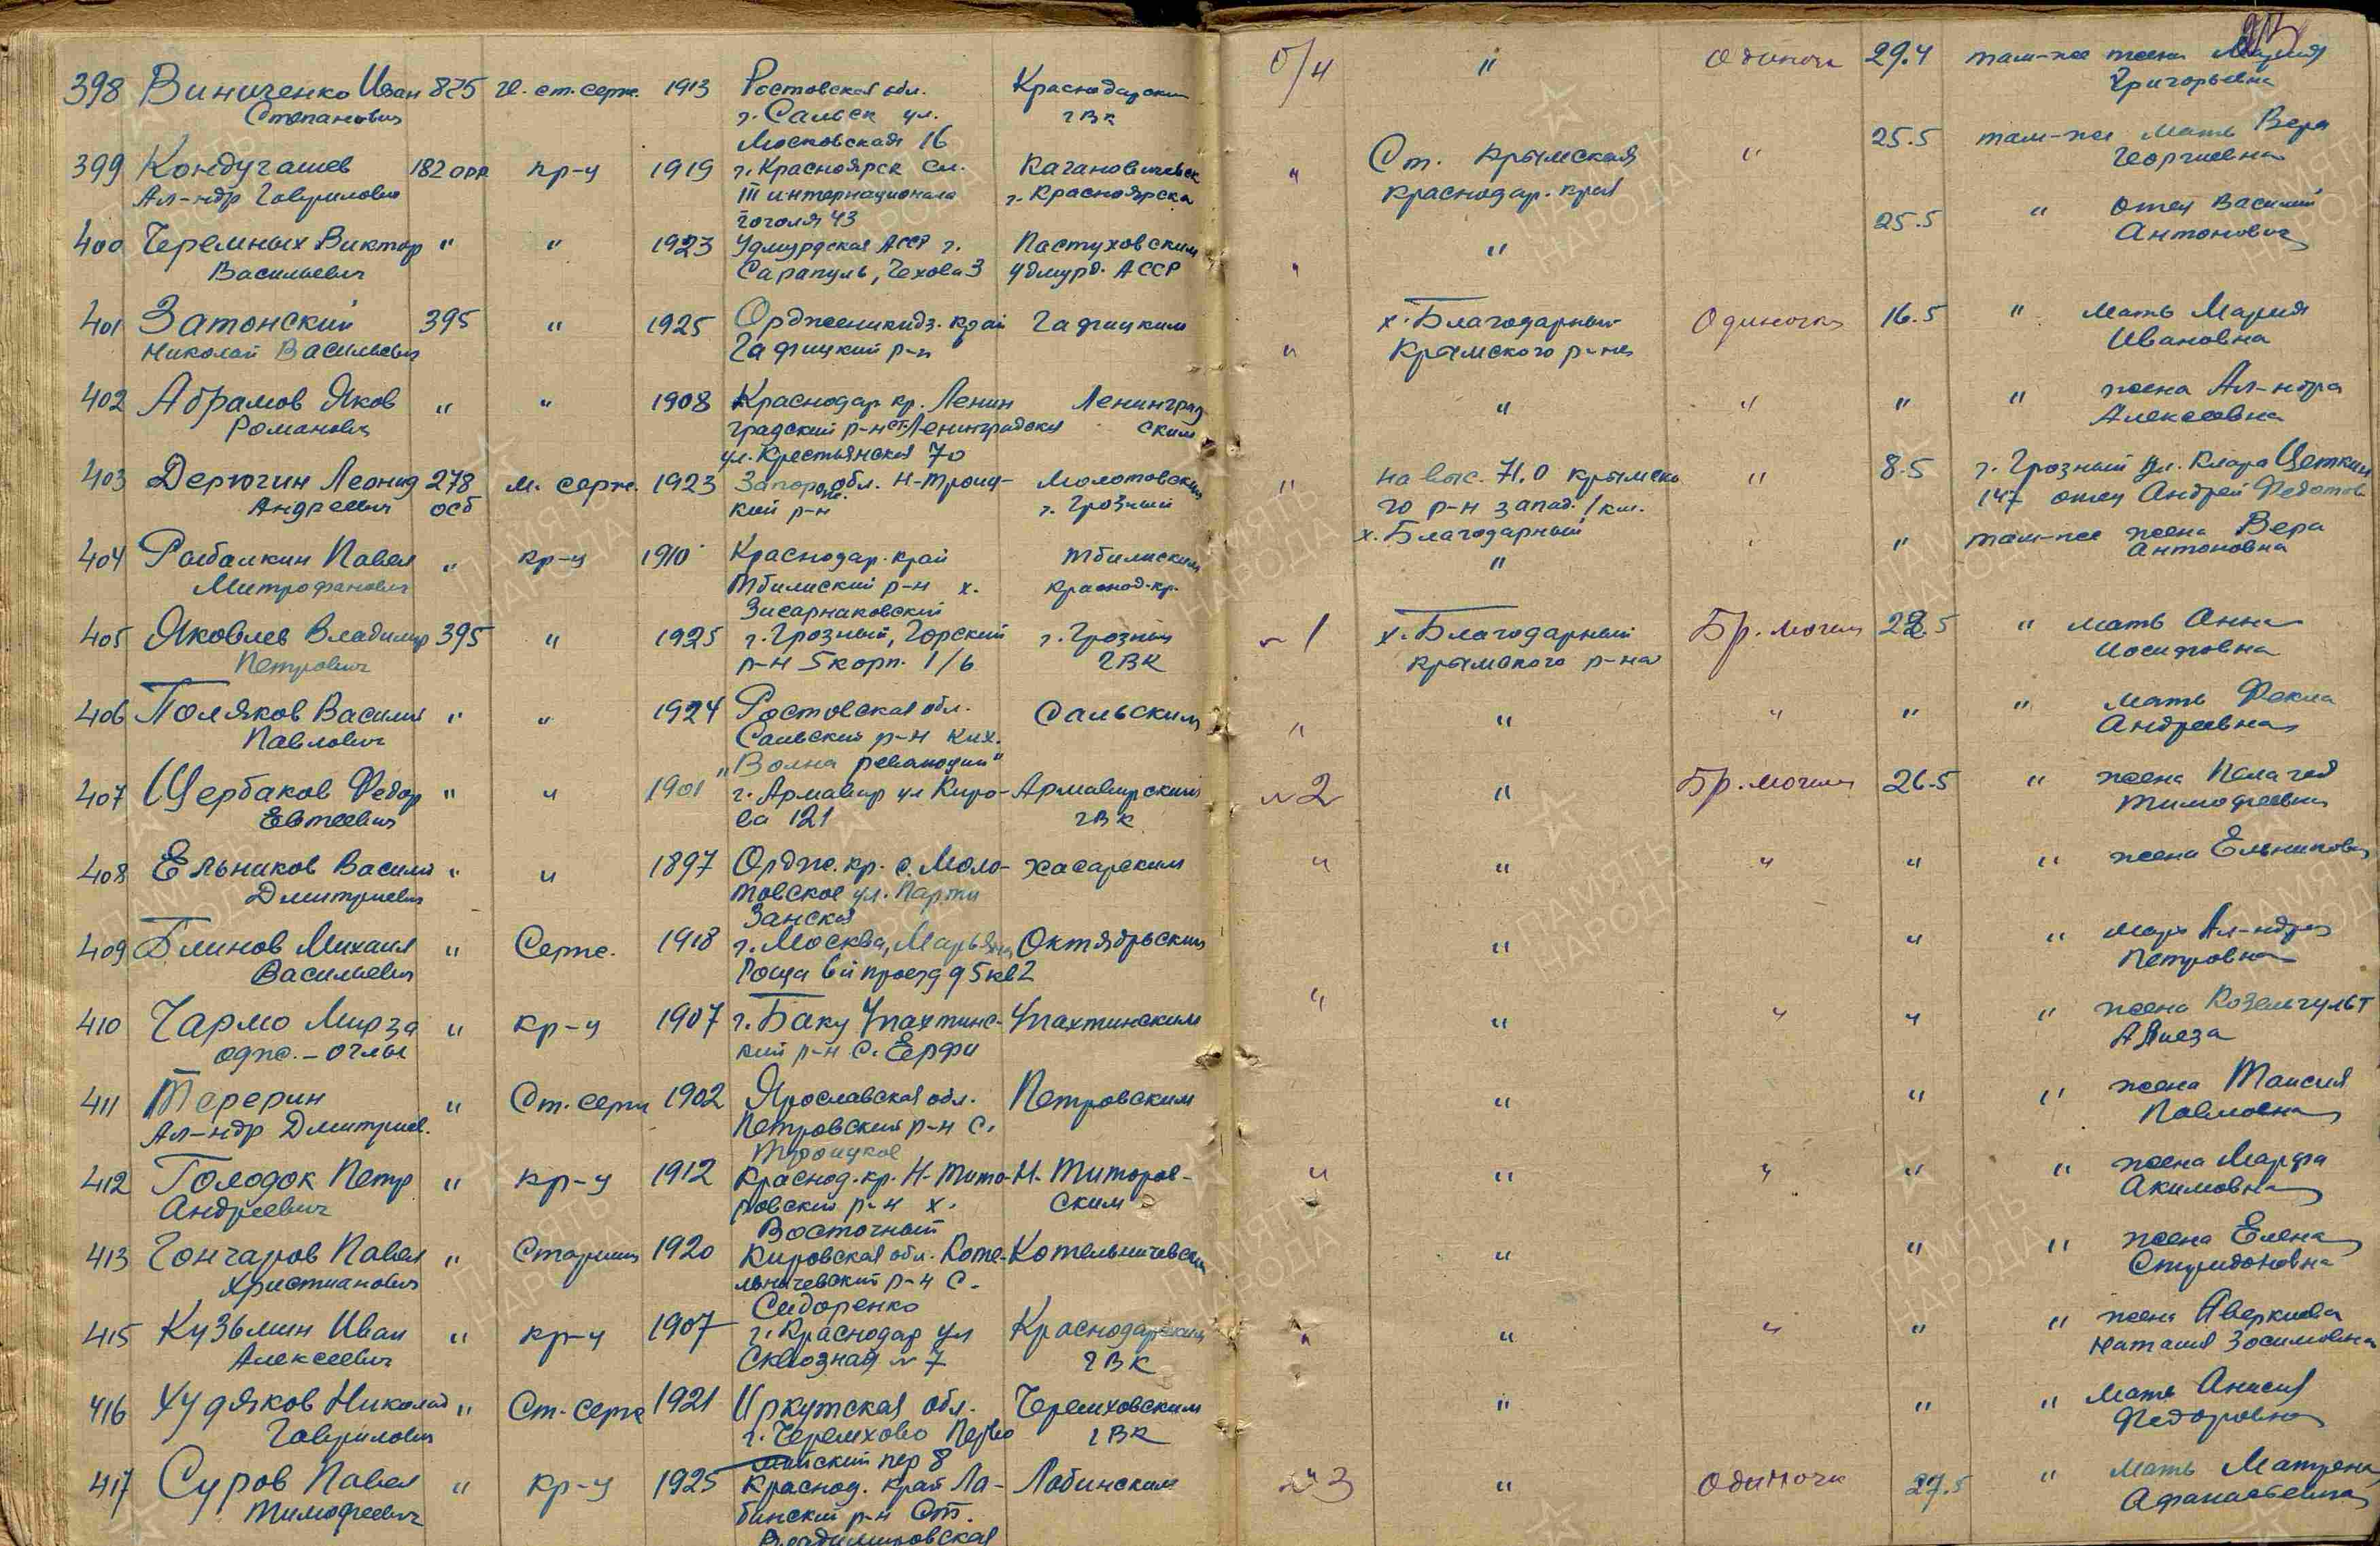 398 Виниченко Иван 875 Ч. ст. серж. 1913 Ростовская обл. Краснодарским б/н " Одиночн 29.4 там-же жена Мария
Степанович г. Сальск ул. ГВК Григорьевна
Московская 16
399 Кондучашев 182 орр кр-ц 1919 г. Красноярск сл. Кагановичевск " Ст. Крымская " 25.5 там-же мать Вера
Ал-ндр Гаврилович III интернационала г. Красноярска Краснодар. края Георгиевна
Гоголя 43
400 Черемных Виктор " " 1923 Удмурдская АССР г. Пастуховским " " 25.5 " отец Василий
Васильевич Сарапуль, Чехова 3 Удмурд. АССР Антонович
401 Затонский 395 " 1925 Орджоникидз. край Гафицким " х. Благодарный Одиночка 16.5 " мать Мария
Николай Васильевич Гафицкий р-н Крымского р-на Ивановна
402 Абрамов Яков " " 1908 Краснодар. кр. Ленин Ленинград " " " " жена Ал-ндра
Романович градский р-н ст. Ленинградская ским Алексеевна
ул. Крестьянская 70
403 Дерюгин Леонид 278 м. серж. 1923 Запорож. обл. Н-Троиц- Молотовским " на выс. 71.0 Крымско " 8.5 г. Грозный ул. Клара Цеткин
Андреевич осб кий р-н г. Грозный го р-н запад. 1 км. 147 отец Андрей Федотов
х. Благодарный
404 Рыбалкин Павел " кр-ц 1910 Краснодар. край Тбилиским " " там-же жена Вера
Митрофанович Тбилиский р-н х. Краснод. кр. Антоновна
Зисарнаковский
405 Яковлев Владимир 395 " 1925 г. Грозный, Горский г. Грозным № 1 х. Благодарный Бр. могил 23.5 " мать Анна
Петрович р-н 5 корп. 1/6 ГВК Крымского р-на Иосифовна
406 Поляков Василий " " 1924 Ростовская обл. Сальским " " " " " мать Фекла
Павлович Сальский р-н к.х. Андреевна
"Волна революции"
407 Щербаков Федор " " 1901 г. Армавир ул Киро- Армавирским № 2 " Бр. могил 26.5 " жена Пелагея
Евтеевич ва 121 ГВК Тимофеевна
408 Ельников Василий " " 1897 Ордж. кр. с. Моло- Хасарским " " " " " жена Ельникова
Дмитриевич товское ул. Парти
занская
409 Блинов Михаил " Серж. 1918 г. Москва, Марьина Октябрьским " " " Ал-ндра
Васильевич Роща 6й проезд д 5 кв 2 Петровна
410 Чармо Мирза " кр-ц 1907 г. Баку Шахтинс- Шахтинским " " " " " жена Козельгульт
одж. - оглы кий р-н с. Ерфи
411 Терерин " Ст. серж 1902 Ярославская обл. Петровским " " " жена Таисия
Ал-ндр Дмитриев. Петровский р-н с. Павловна
Троицкое
412 Голодок Петр " кр-ц 1912 Краснод. кр. Н-Тито- Н. Титоров- " " " " " жена Марфа
Андреевич ровский р-н х. ским Акимовна
Восточный
413 Гончаров Павел " Старшин 1920 Кировская обл. Коте- Котельничевским " " " жена Елена
Христианович льничевский р-н с. Спиридоновна
Сидоренко
415 Кузьмин Иван " кр-ц 1907 г. Краснодар ул Краснодарским " " " " " жена Аверкиева
Алексеевич Сквозная № 7 ГВК Наталия Зосимовна
416 Худяков Николай " Ст. серж 1921 Иркутская обл. Черемховским " " " мать Анисия
Гаврилович г. Черемхово Перво ГВК Федоровна
майский пер 8
417 Суров Павел " кр-ц 1925 Краснод. край Ла- Лабинским № 3 " Одиночн 27.5 " мать Матрена
Тимофеевич бинский р-н Ст. Афанасьевна
Владимировская